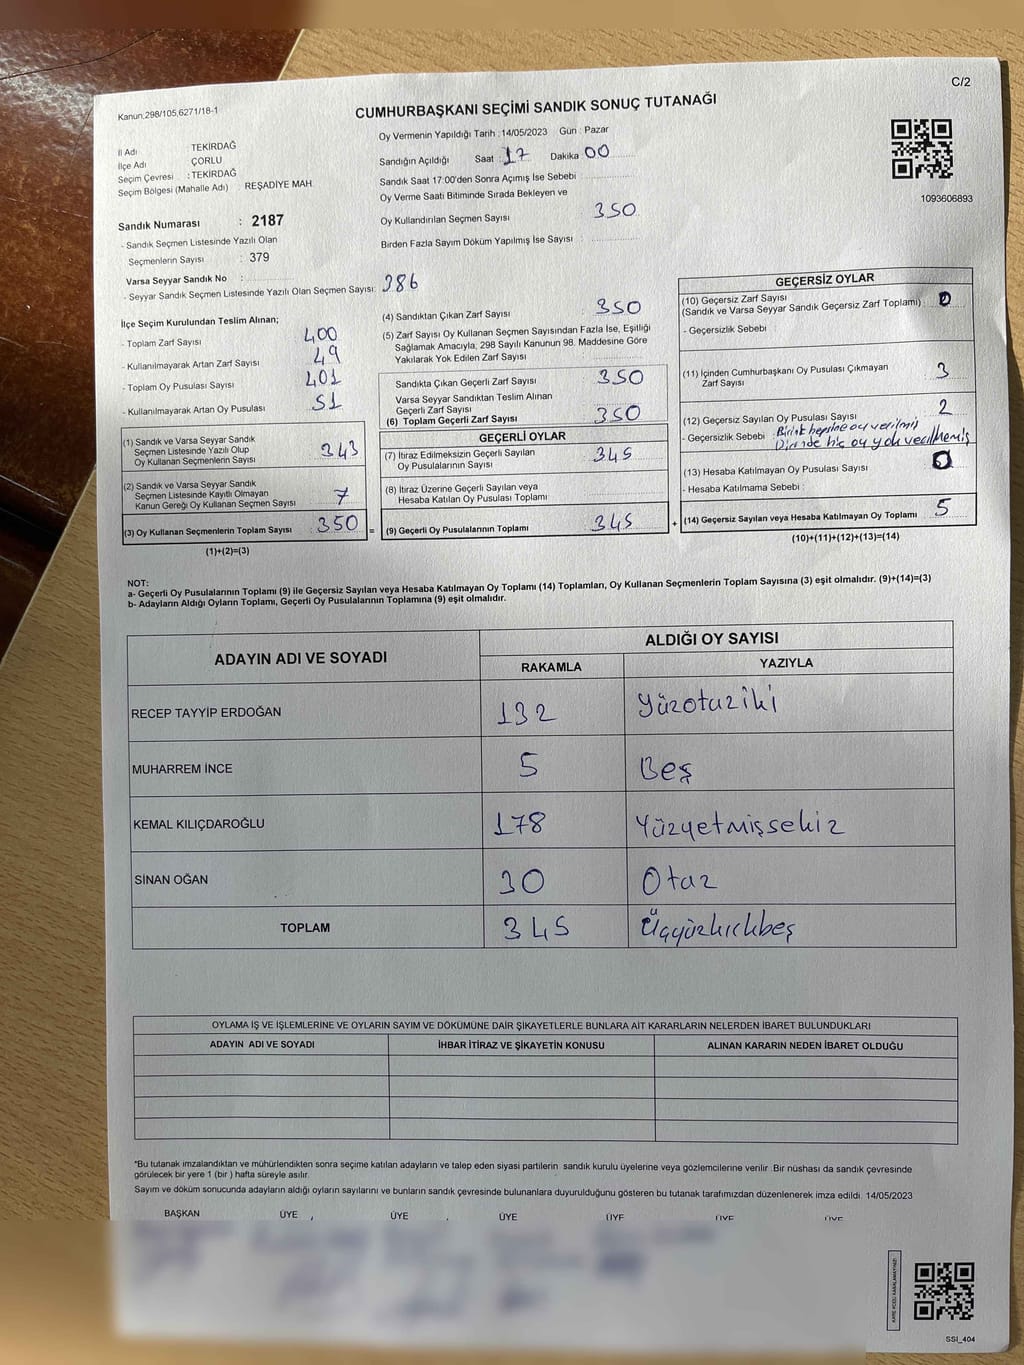 C/2
Kanun.298/105.6271/18-1
CUMHURBAŞKANI SEÇİMİ SANDIK SONUÇ TUTANAĞI
İl Adı TEKİRDAĞ
İlçe Adı ÇORLU
Seçim Çevresi : TEKİRDAĞ
Seçim Bölgesi (Mahalle Adı) REŞADİYE MAH
Sandık Numarası : 2187
- Sandık Seçmen Listesinde Yazılı Olan
Seçmenlerin Sayısı : 379
Varsa Seyyar Sandık No :
- Seyyar Sandık Seçmen Listesinde Yazılı Olan Seçmen Sayısı: 386
Oy Vermenin Yapıldığı Tarih :14/05/2023 Gün : Pazar
Sandığın Açıldığı Saat : 17 Dakika 00
Sandık Saat 17:00'den Sonra Açımış İse Sebebi
Oy Verme Saati Bitiminde Sırada Bekleyen ve
Oy Kullandırılan Seçmen Sayısı 350
Birden Fazla Sayım Döküm Yapılmış İse Sayısı :
1093606893
İlçe Seçim Kurulundan Teslim Alınan;
- Toplam Zarf Sayısı 400
- Kullanılmayarak Artan Zarf Sayısı 49
- Toplam Oy Pusulası Sayısı 401
- Kullanılmayarak Artan Oy Pusulası 51
(1) Sandık ve Varsa Seyyar Sandık
Seçmen Listesinde Yazılı Olup
Oy Kullanan Seçmenlerin Sayısı 343
(2) Sandık ve Varsa Seyyar Sandık
Seçmen Listesinde Kayıtlı Olmayan
Kanun Gereği Oy Kullanan Seçmen Sayısı 7
(3) Oy Kullanan Seçmenlerin Toplam Sayısı 350 =
(1)+(2)=(3)
(4) Sandıktan Çıkan Zarf Sayısı 350
(5) Zarf Sayısı Oy Kullanan Seçmen Sayısından Fazla İse, Eşitliği
Sağlamak Amacıyla, 298 Sayılı Kanunun 98. Maddesine Göre
Yakılarak Yok Edilen Zarf Sayısı
Sandıkta Çıkan Geçerli Zarf Sayısı 350
Varsa Seyyar Sandıktan Teslim Alınan
Geçerli Zarf Sayısı
(6) Toplam Geçerli Zarf Sayısı 350
GEÇERLİ OYLAR
(7) İtiraz Edilmeksizin Geçerli Sayılan
Oy Pusulalarının Sayısı 345
(8) İtiraz Üzerine Geçerli Sayılan veya
Hesaba Katılan Oy Pusulası Toplamı
(9) Geçerli Oy Pusulalarının Toplamı 345 +
GEÇERSİZ OYLAR
(10) Geçersiz Zarf Sayısı
(Sandık ve Varsa Seyyar Sandık Geçersiz Zarf Toplamı) 0
- Geçersizlik Sebebi :
(11) İçinden Cumhurbaşkanı Oy Pusulası Çıkmayan
Zarf Sayısı 3
(12) Geçersiz Sayılan Oy Pusulası Sayısı 2
- Geçersizlik Sebebi : hepsine oy verilmiş
hiç oy yok verilmemiş
(13) Hesaba Katılmayan Oy Pusulası Sayısı 0
- Hesaba Katılmama Sebebi :
(14) Geçersiz Sayılan veya Hesaba Katılmayan Oy Toplamı 5
(10)+(11)+(12)+(13)=(14)
NOT:
a- Geçerli Oy Pusulalarının Toplamı (9) ile Geçersiz Sayılan veya Hesaba Katılmayan Oy Toplamı (14) Toplamları, Oy Kullanan Seçmenlerin Toplam Sayısına (3) eşit olmalıdır. (9)+(14)=(3)
b- Adayların Aldığı Oyların Toplamı, Geçerli Oy Pusulalarının Toplamına (9) eşit olmalıdır.
ADAYIN ADI VE SOYADI ALDIĞI OY SAYISI
RAKAMLA YAZIYLA
RECEP TAYYİP ERDOĞAN 132 Yüzotuziki
MUHARREM İNCE 5 Beş
KEMAL KILIÇDAROĞLU 178 Yüzyetmişsekiz
SİNAN OĞAN 30 Otuz
TOPLAM 345 Üçyüzkırkbeş
OYLAMA İŞ VE İŞLEMLERİNE VE OYLARIN SAYIM VE DÖKÜMÜNE DAİR ŞİKAYETLERLE BUNLARA AİT KARARLARIN NELERDEN İBARET BULUNDUKLARI
ADAYIN ADI VE SOYADI İHBAR İTİRAZ VE ŞİKAYETİN KONUSU ALINAN KARARIN NEDEN İBARET OLDUĞU
*Bu tutanak imzalandıktan ve mühürlendikten sonra seçime katılan adayların ve talep eden siyasi partilerin sandık kurulu üyelerine veya gözlemcilerine verilir. Bir nüshası da sandık çevresinde
görülecek bir yere 1 (bir ) hafta süreyle asılır.
Sayım ve döküm sonucunda adayların aldığı oyların sayılarını ve bunların sandık çevresinde bulunanlara duyurulduğunu gösteren bu tutanak tarafımızdan düzenlenerek imza edildi. 14/05/2023
BAŞKAN ÜYE ÜYE ÜYE ÜYE ÜYE ÜYE
SSI_404